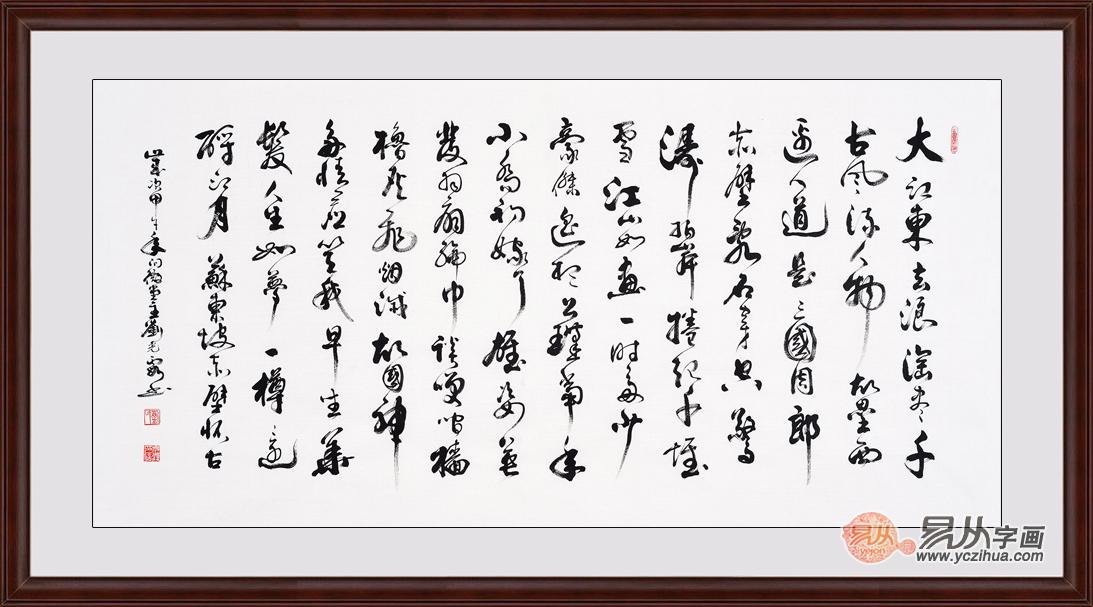 大江東去浪淘盡千
古風流人物故壘西
邊人道是三國周郎
赤壁亂石穿空驚
濤拍岸捲起千堆
雪江山如畫一時多少
豪傑遙想公瑾當年
小喬初嫁了雄姿英
發羽扇綸巾談笑間檣
櫓灰飛烟滅故國神
多情應笑我早生華
髮人生如夢一樽還
酹江月蘇東坡赤壁懷古
歲次甲午年堂主劉光霞書
易从
yejon
易从字画
www.yczihua.com